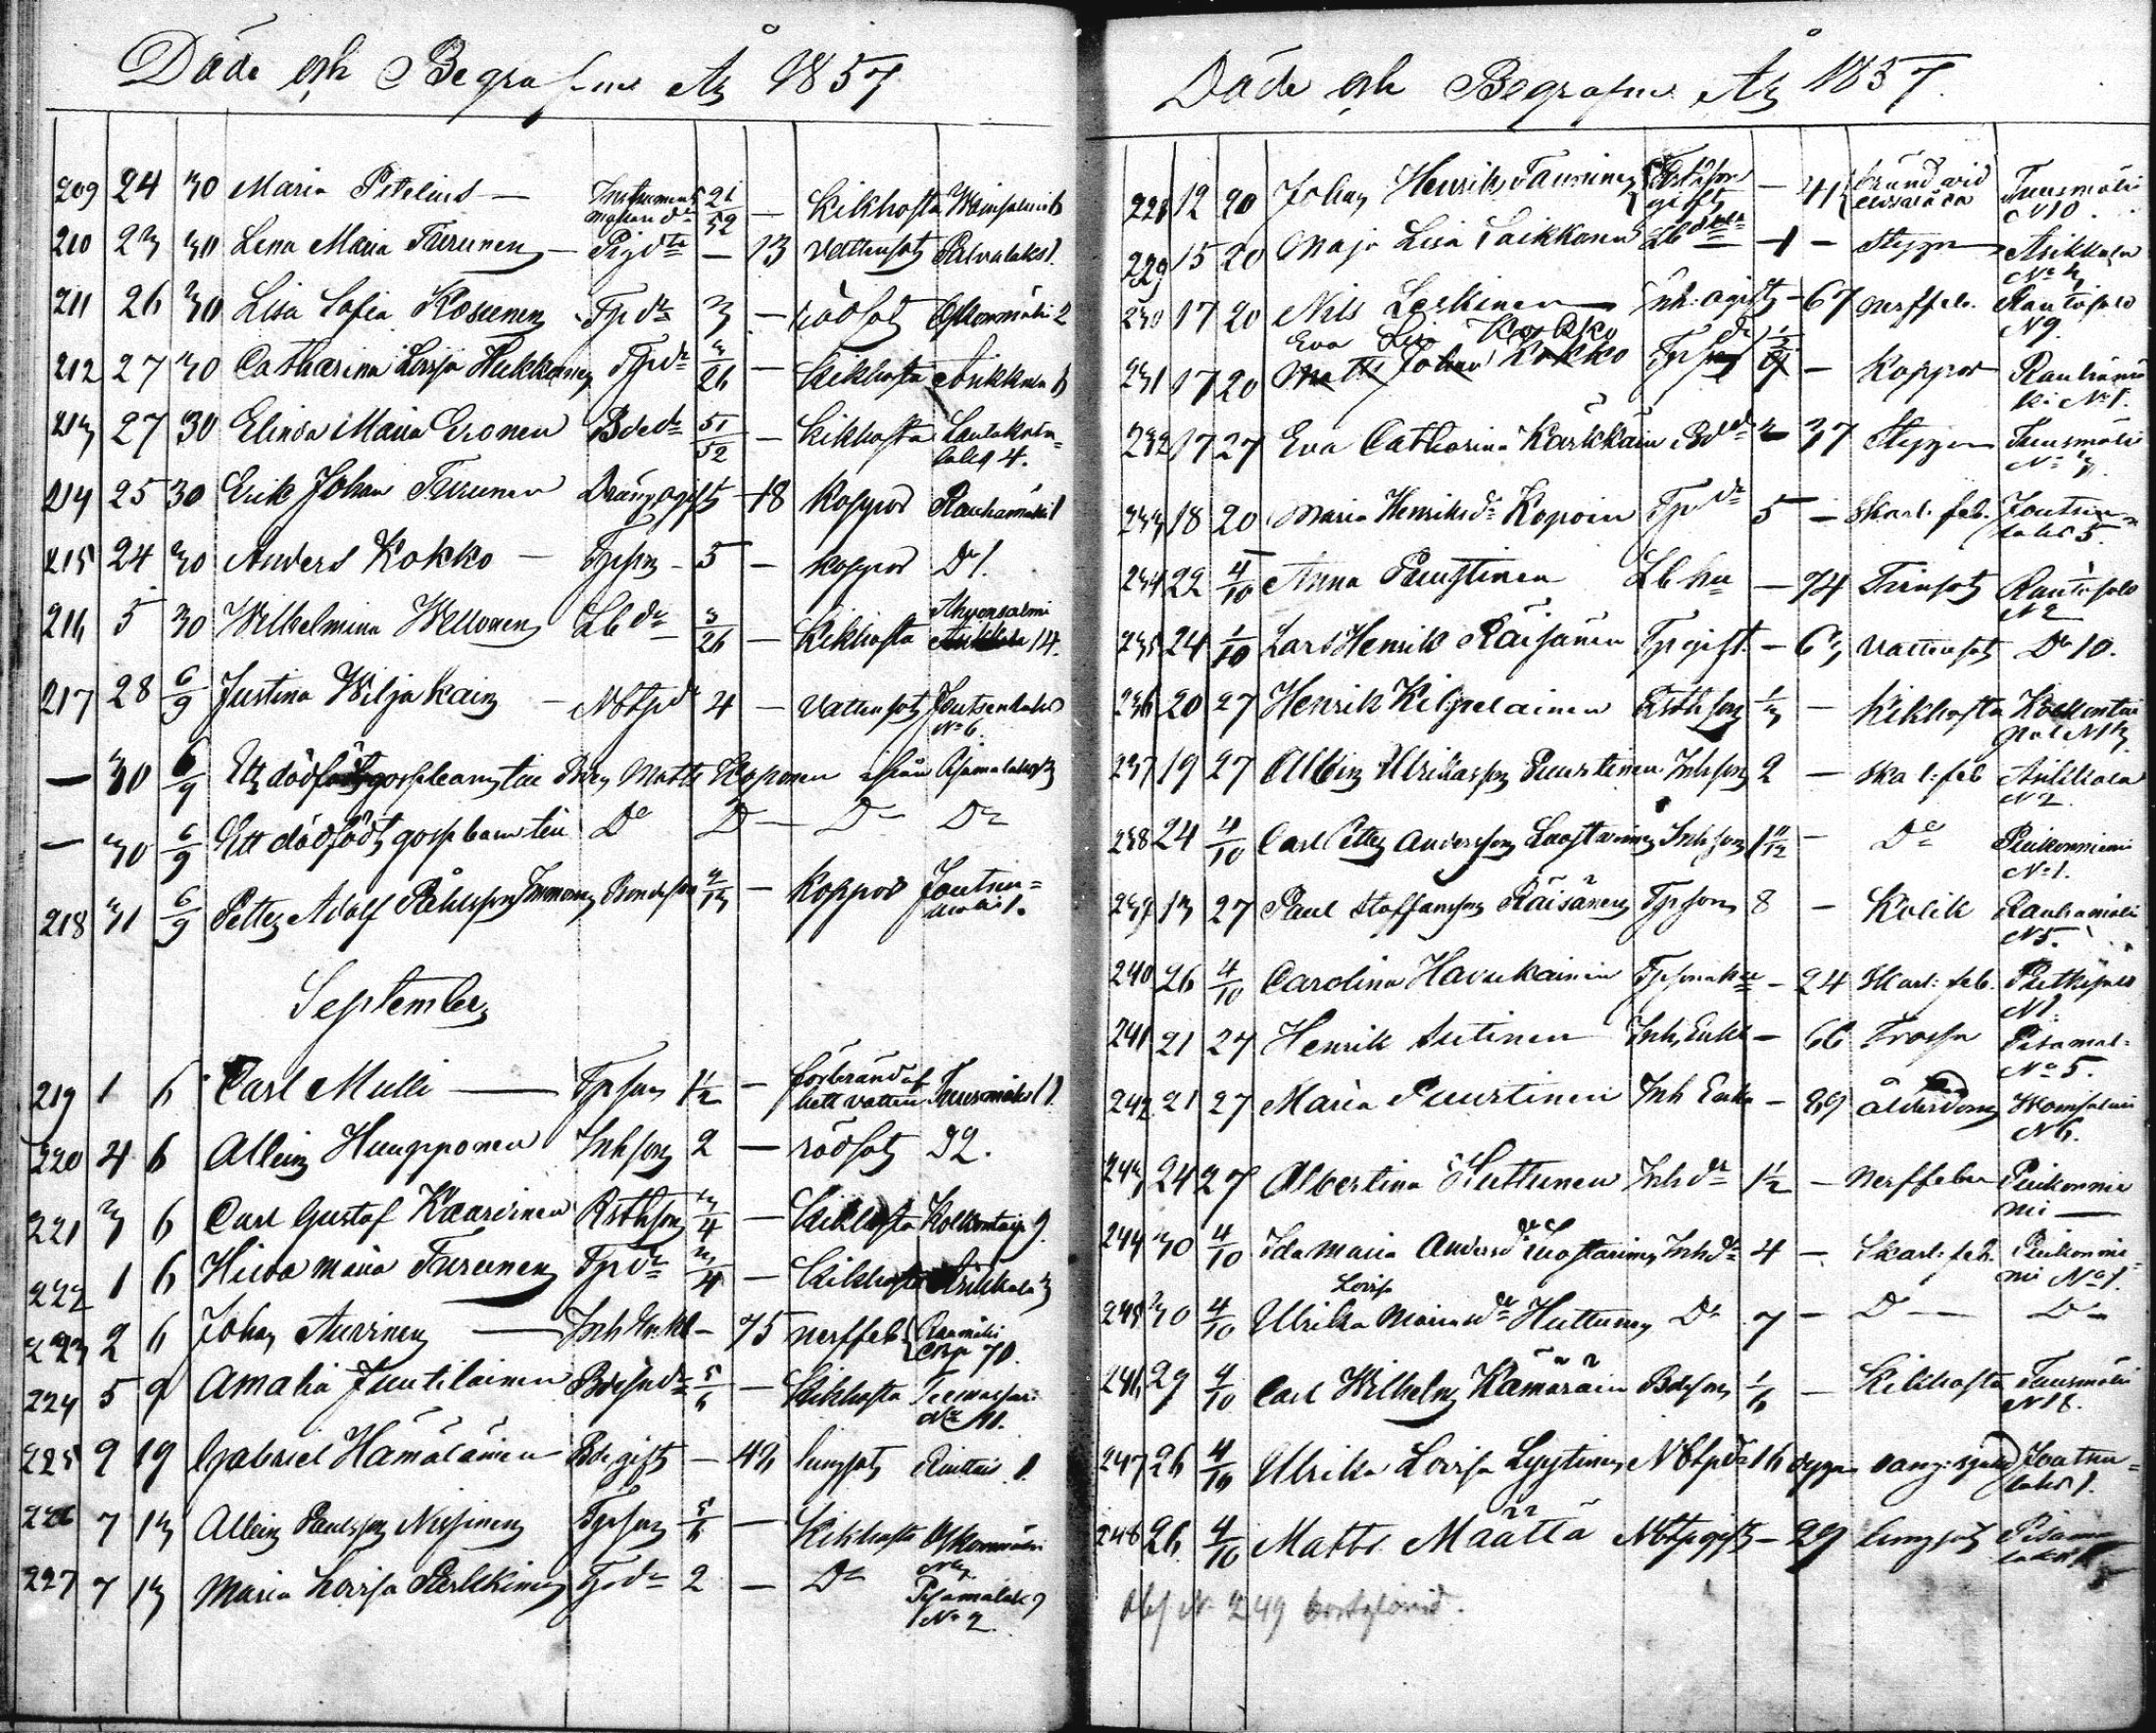 Döde och Begrafne År 1857
209 24 30 Maria Petelius — Instrument makare dr 21/52 — Kikhosta
210 23 30 Lena Maria Turunen — Pig dtr — 13 Vattensot Palvalaks 1.
211 26 30 Lisa Sofia Kosunen Tp dr 3 — rödsot Oskonmäki 2
212 27 30 Catharina Lovisa Hukkanen Tp dr 3/26 — Kikhosta Asikkala 6
213 27 30 Elinda Maria Eronen Bde dr 51/52 — Kikhosta
laks 4.
214 25 30 Erik Johan Turunen Dräng ogift — 18 Koppor Rauhamäki 1
215 24 30 Anders Kokko — Tpson — 5 — Koppor Do 1.
216 5 30 Wilhelmina Wellonen Lb dr 3/26 — Kikhosta Ahvensalmi 14.
217 28 6/9 Justina Wiljakain — Nbtp dr 4 — Vattensot Joutsenlaks
No 6.
— 30 6/9 Ett dödfödt gossebarn till Matts Koponen ifrån
— 30 6/9 Ett dödfödt gossebarn till Do Do Do Do
218 31 6/9 Petter Adolf Påhlsson Immonen Bondeson — Koppor Joutsen=
September
219 1 6 Carl Mulli — Tpson 1 1/2 — förbränd af
hett vatten Tuusmäki 11.
220 4 6 Allbin Huupponen Inhson 2 — rödsot D 2.
221 3 6 Carl Gustaf Kaarinen Rsthson 3/4 — Kikhosta Kolkontaip 9.
222 1 6 Hilda Maria Turunen Tp dr 3/4 — Kikhosta Asikkala 3
223 2 6 Johan Auvinen — Inh Enkl — 75 nerffeb
70.
224 5 9 Amalia Juutilainen Bdeson dr 5/6 — Kikhosta
No 11.
225 9 19 Gabriel Hämäläinen Bde gift — 42 lungsot
226 7 13 Allbin Paulsson Nissinen Tpson 5/6 — Kikhosta Oskonmäki
227 7 13 Maria Lovisa Parkkinen Tp dr 2 — Do Pisamalaks
No 2.
Döde och Begrafne År 1857.
228 12 20 Johan Henrik Tauriainen gift — 41 bränd vid Tuusmäki
N 10.
229 15 20 Maja Lisa Laikkonen Lb — 1 — Stygn Asikkala
No 4
230 17 20 Nils Leskinen Inh: ogift — 67 nerffeb. Rantasalo
N 9.
Eva Lisa Kokko
231 17 20 Matts Johan Kokko Tpson 1/2 — Koppor Rauhamä
ki No 1.
232 17 27 Eva Catharina Kärkkäin Bd 37 Stygn Tuusmäki
233 18 20 Maria Henriksdr Kopoin Tp dr 5 — Skarl: feb. Joutsen=
laks 5.
234 22 4/10 Anna Puustinen Lb hu — 74 Tvinsot Rantasalo
N 2
235 24 1/10 Lars Henrik Räisänen Tp gift. — 63 Vattensot Do 10.
236 20 27 Henrik Kilpelainen Rsthson 1/3 — Kikhosta Kolkontai
pal N 13.
237 19 27 Albin Ulrikasson Puustinen Inhson 2 — Skarl: feb Asikkala
N 2.
238 24 4/10 Carl Petter Andersson Luostarinen Inhson 1 11/12 — Do Pirkonniemi
No 1.
239 13 27 Paul Staffansson Räisänen Tpson 8 — Kolik Rauhamäki
N 5.
240 26 4/10 Carolina Havukainen Tpsons hu — 24 Skarl: feb.
N 1.
241 21 27 Henrik Autinen Inh. Enkl — 66 Trossn Pisamal=
No 5.
242 21 27 Maria Puustinen Inh Enka — 89 ålderdom
N 6.
243 24 27 Albertina Huttunen Inh dr 1 1/2 — Nerffeber Pirkonnie
mi —
244 30 4/10 Ida Maria Andersdr Luostarinen Inh dr 4 — Skarl: feb. Pirkonnie
mi No 1.
Lovisa
245 30 4/10 Ulrika Mariasdr Huttunen Do 7 — Do Do
246 29 4/10 Carl Wilhelm Kämäräin Bdeson 1/6 — Kikhosta Tuusmäki
N 18.
247 26 4/10 Ulrika Lovisa Lyytinen Nbtp dr 16 dygn Joutsen=
laks 1.
248 26 4/10 Matts Määttä Nbtp gift — 29 lungsot Pisama
Obs N. 249 bortglömd.